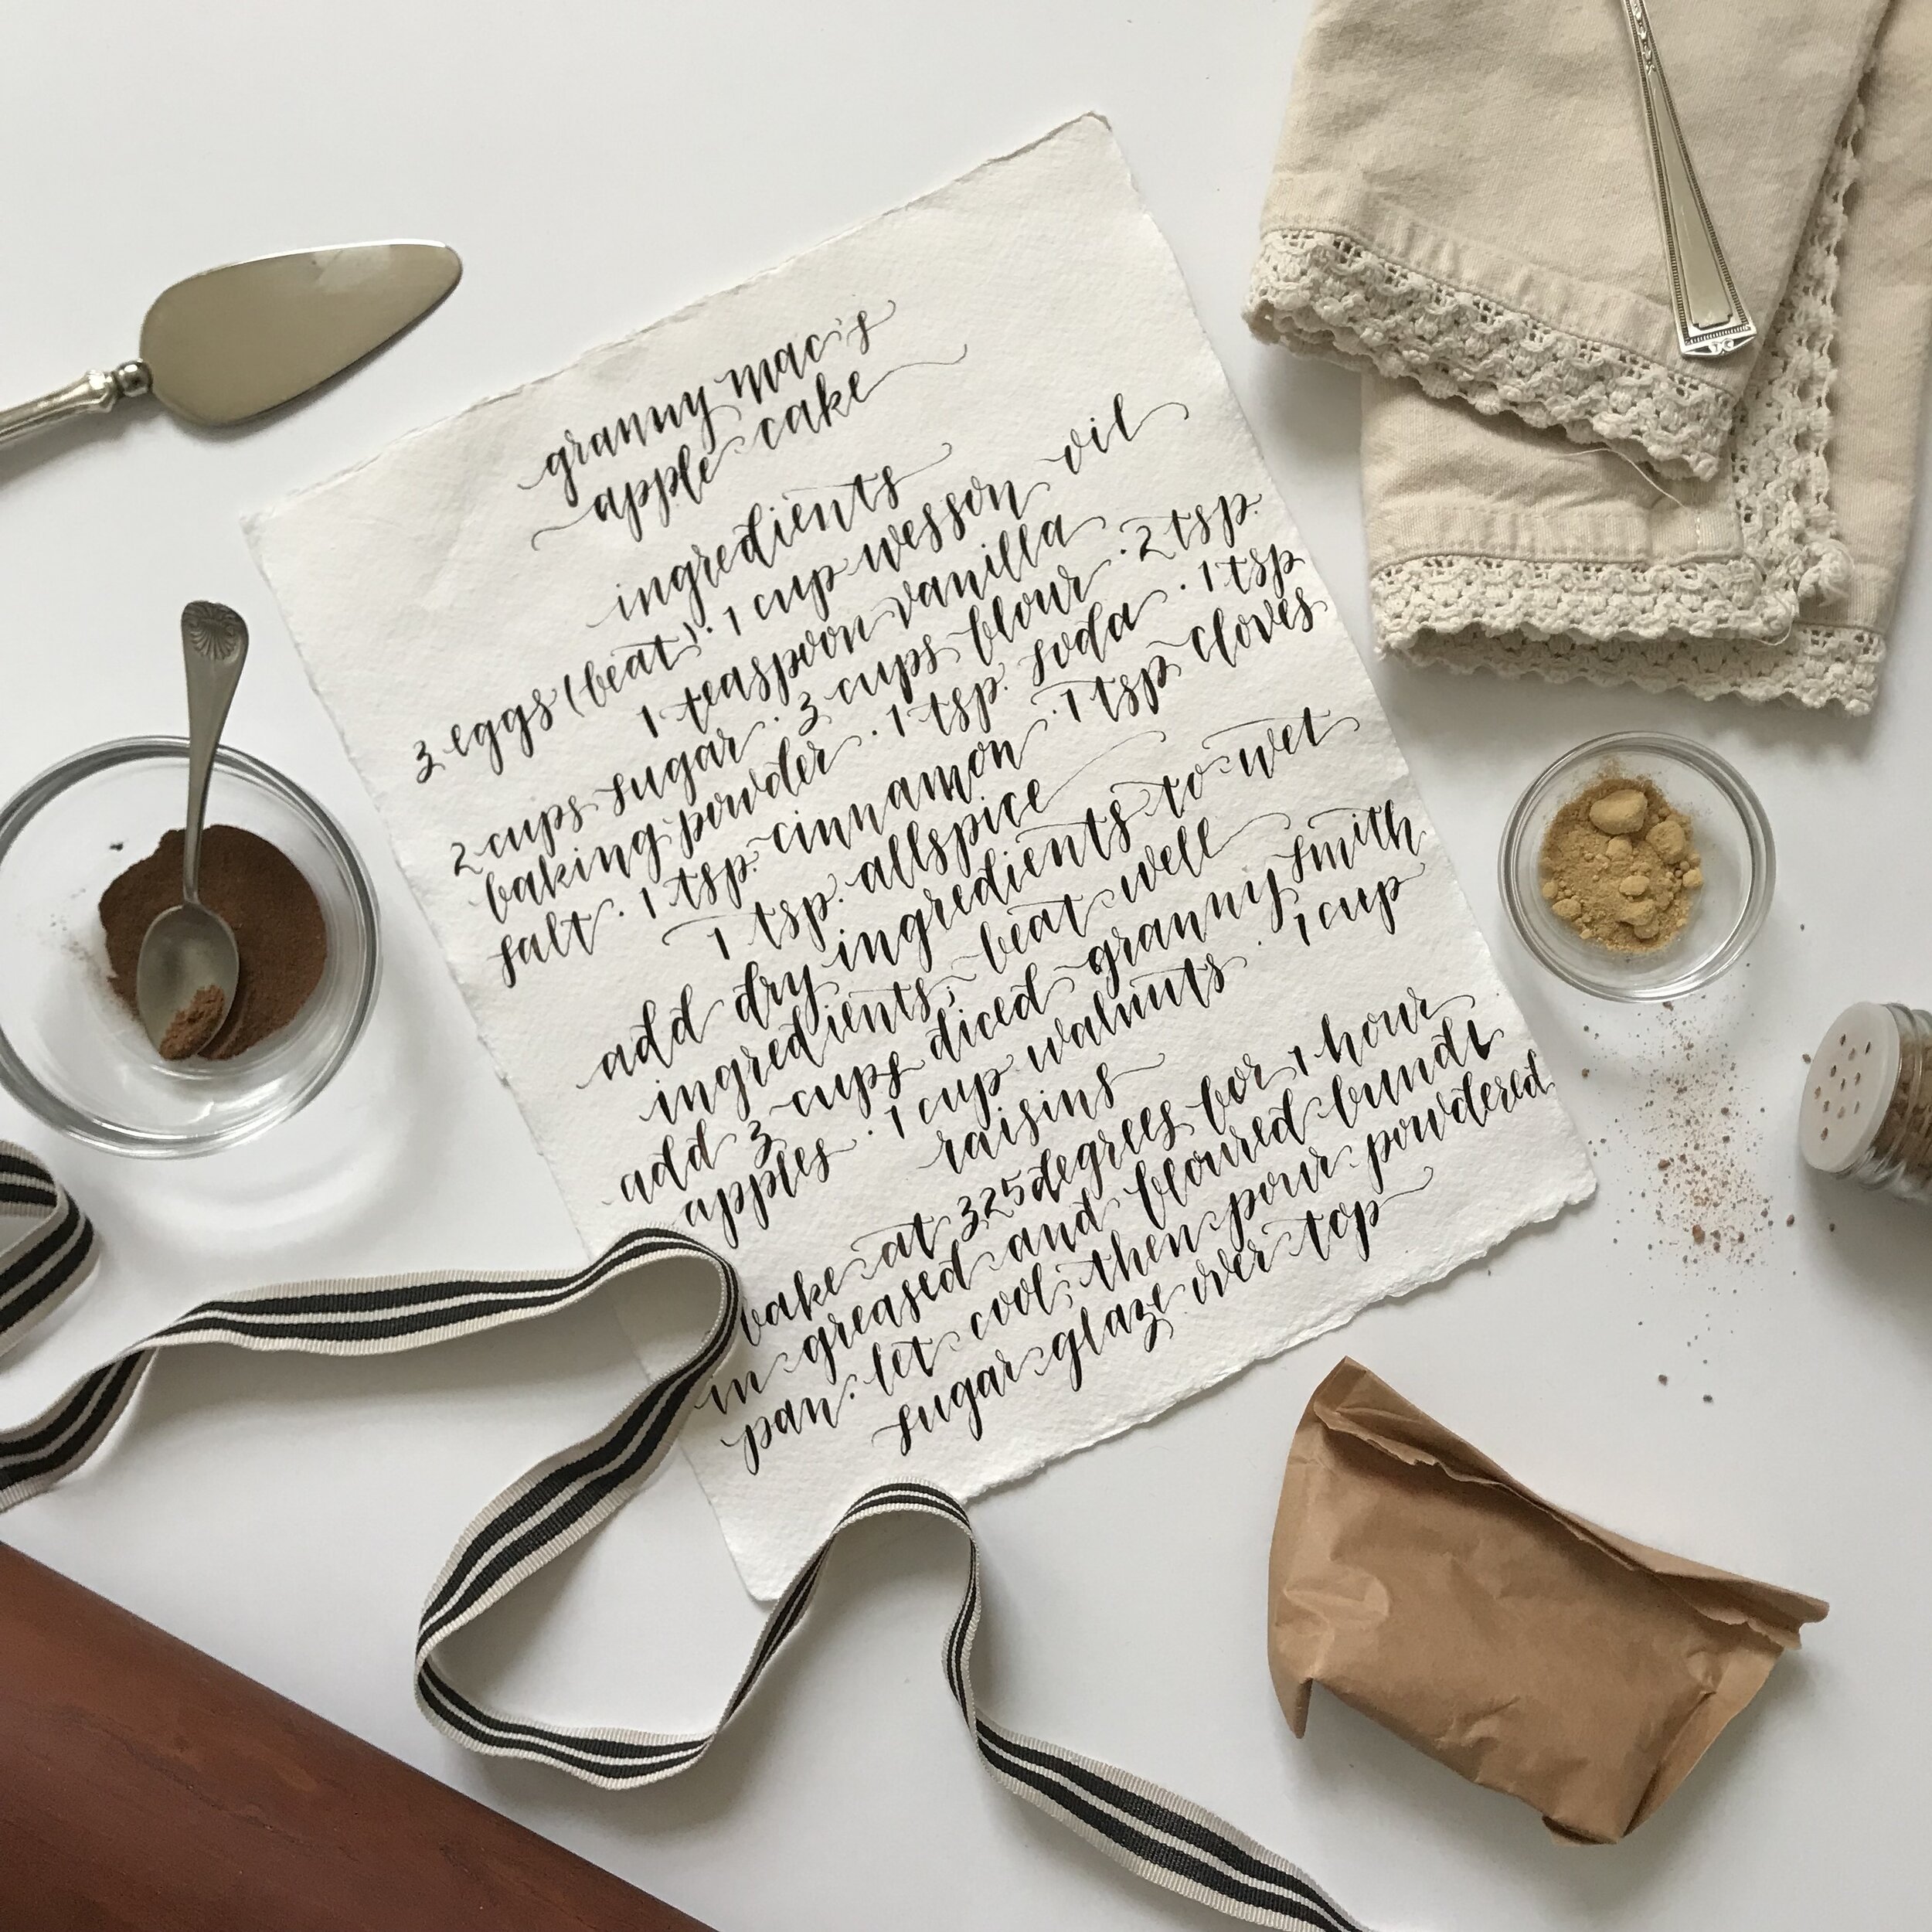 granny mac's
apple cake
ingredients
3 eggs (beat) · 1 cup wesson oil
1 teaspoon vanilla
2 cups sugar · 3 cups flour · 2 tsp.
baking powder · 1 tsp. soda · 1 tsp
salt · 1 tsp. cinnamon · 1 tsp cloves
1 tsp. allspice
add dry ingredients to wet
ingredients; beat well
add 3 cups diced granny smith
apples · 1 cup walnuts · 1 cup
raisins
bake at 325 degrees for 1 hour
in greased and floured bundt
pan. let cool; then pour powdered
sugar glaze over top